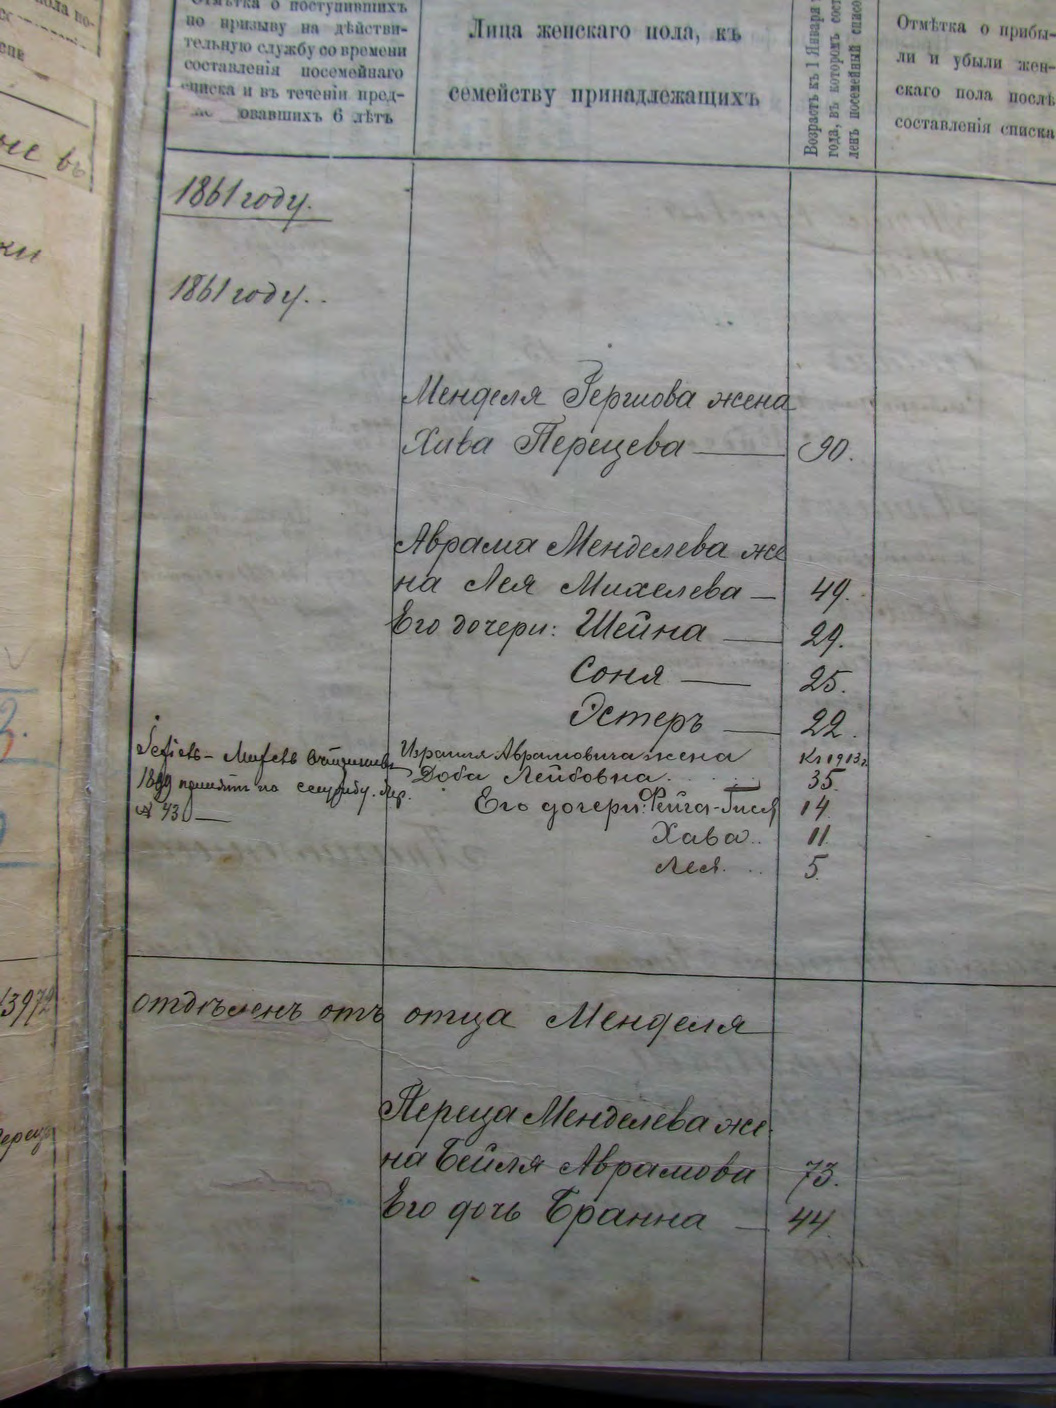 Отмѣтка о поступившихъ
по призыву на дѣйстви-
тельную службу со времени
составленія посемейнаго
списка и въ теченіи пред-
овавшихъ 6 лѣтъ
Лица женскаго пола, къ
семейству принадлежащихъ
Возрастъ къ 1 Января
года, въ которомъ сост
ленъ посемейный списо
Отмѣтка о прибы-
ли и убыли жен-
скаго пола послѣ
составленія списка
1861 году.
1861 году..
Менделя Гершова жена
Хива Перецева — 90.
Аврама Менделева же
на Лея Михелева — 49.
Его дочери: Шейна — 29.
Соня — 25.
Эстеръ — 22.
Израиля Абрамовича жена
Къ 1913 г.
Доба Лейбовна. 35.
Его дочери: Фейга-Гися 14
Хава.. 11
Лея. .. 5.
1899 службу.
№ 43
отдѣленъ отъ отца Менделя
Переца Менделева же
на Бейля Аврамова 73.
Его дочь Бранна — 44.
13972